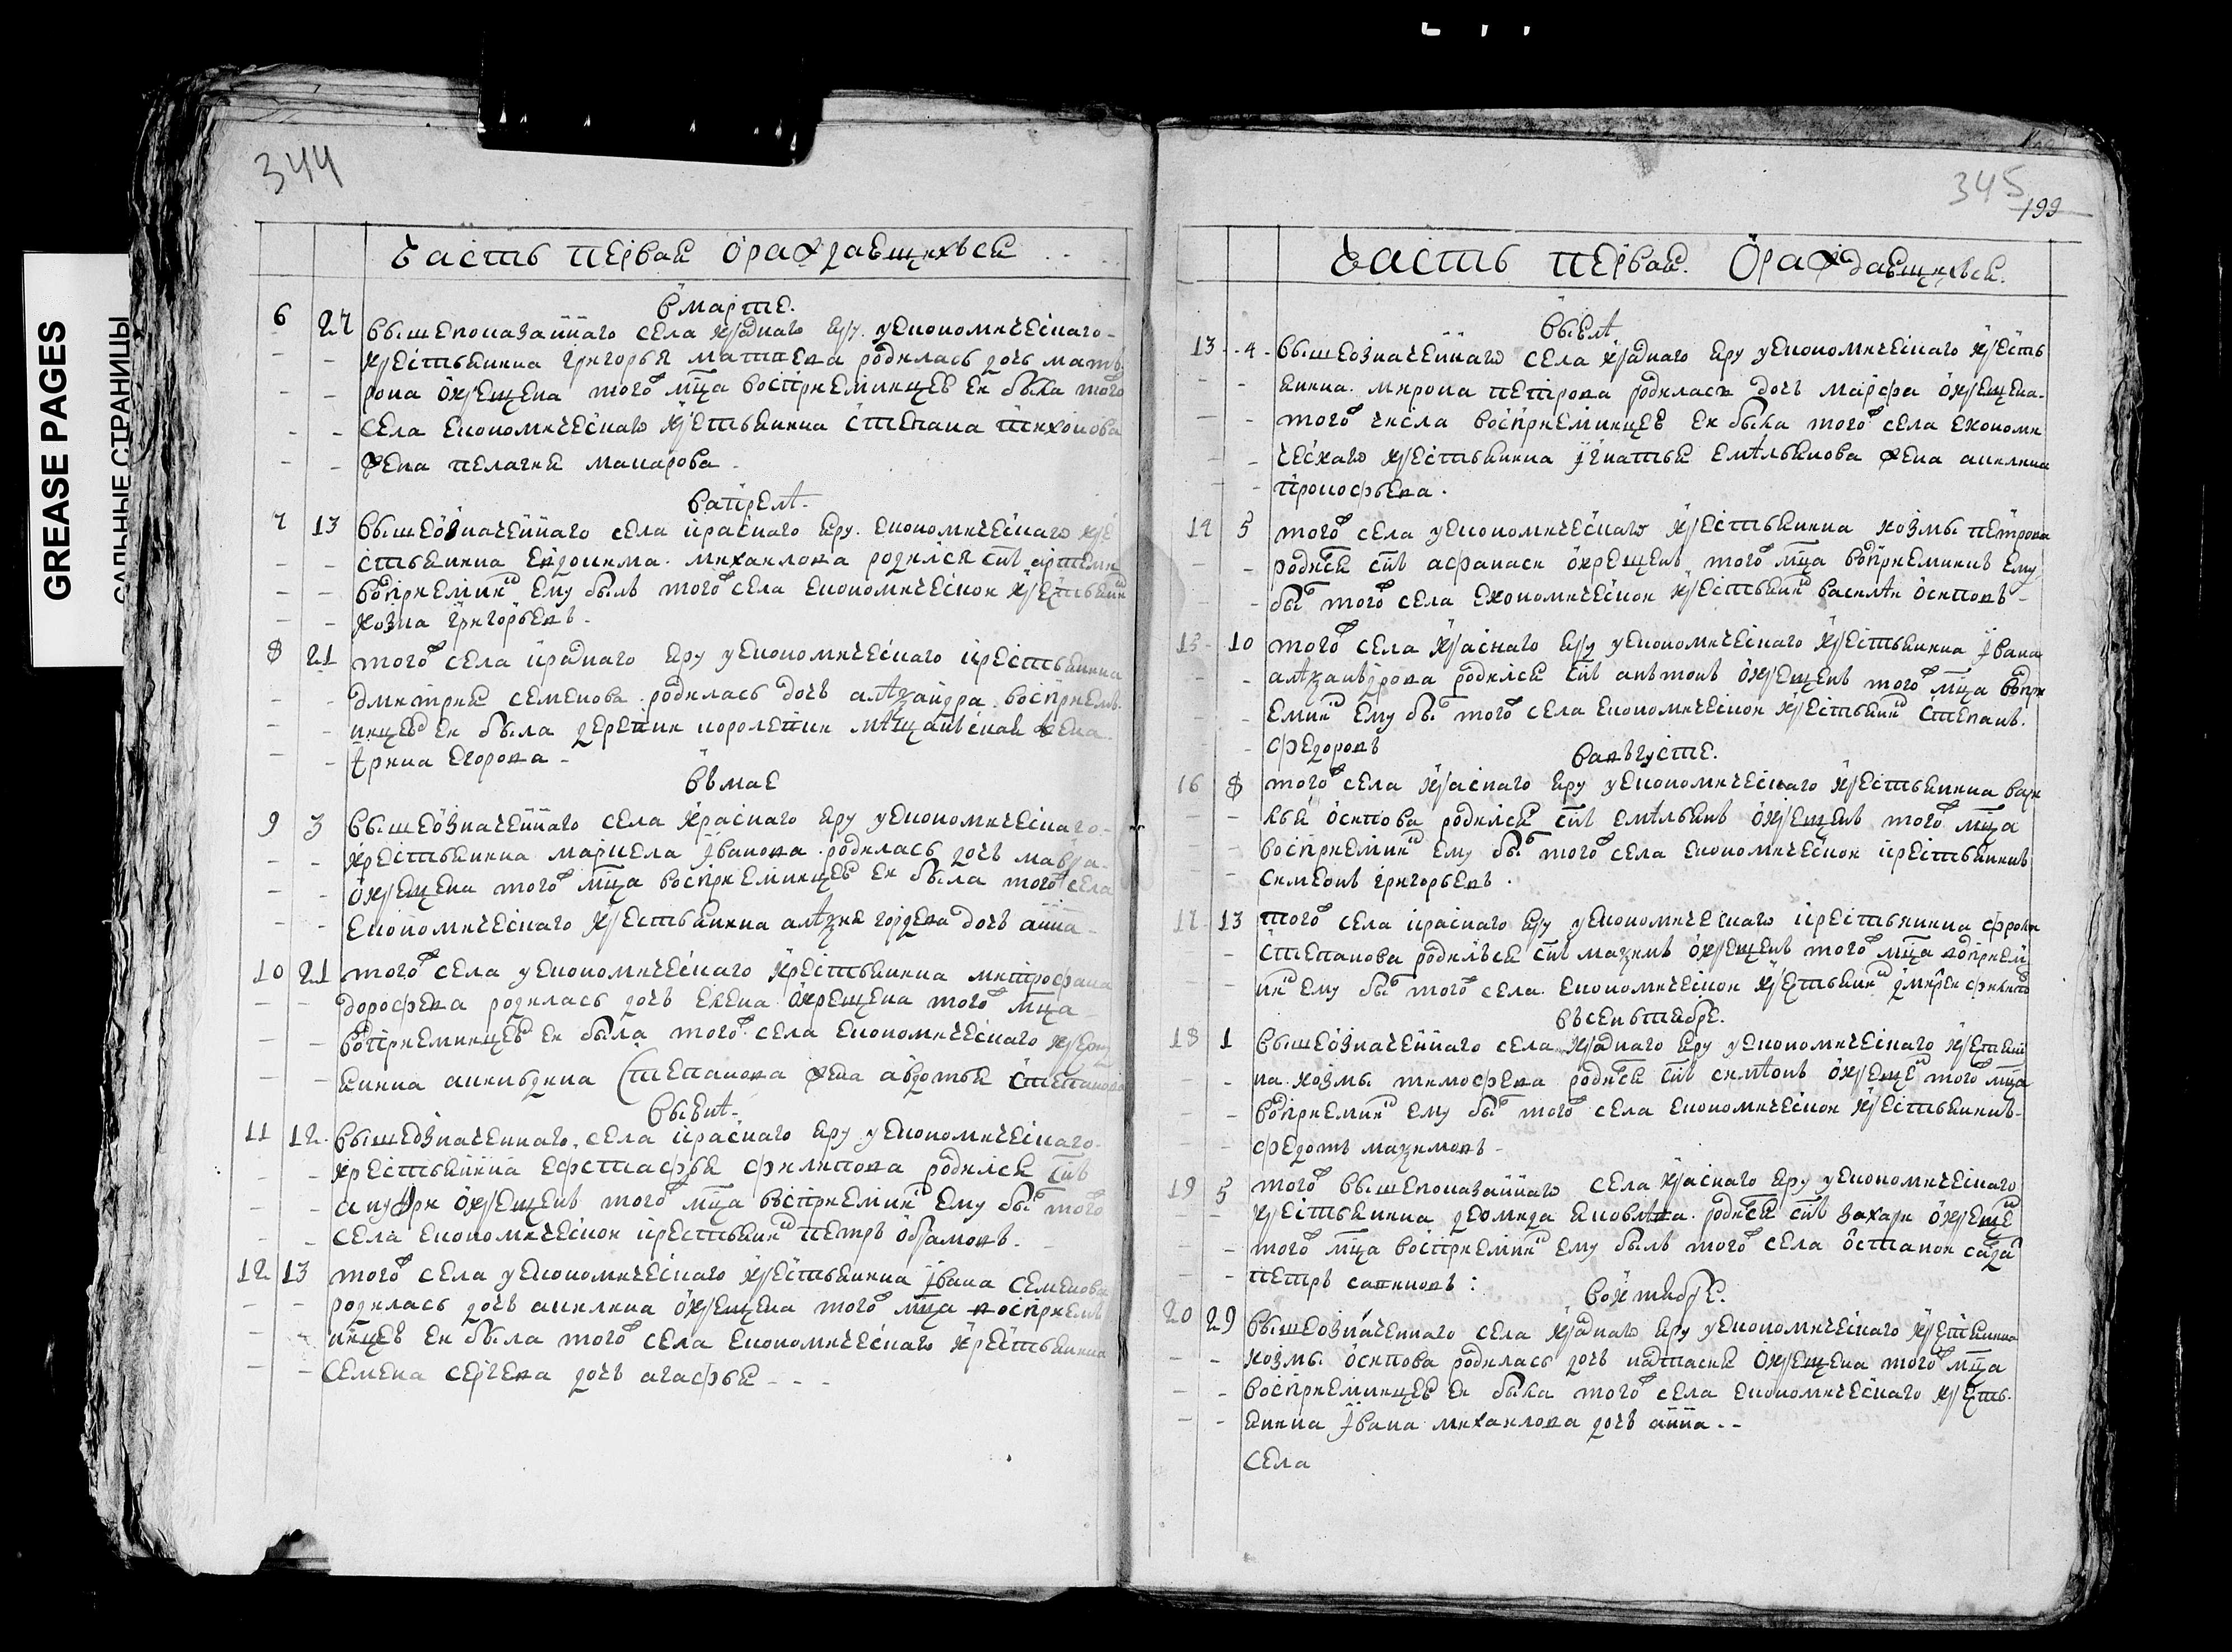 GREASE PAGES
САЛЬНЫЕ СТРАНИЦЫ
344
Часть первая ораждаещихъся
вмарте.
6 27 вышепоказаннаго села краснаго яру уекономическаго
крестьянина григорья матвева родилась дочь матъ
рона окрещена того ж мца восприемницею еи была того
села економическаго крестьянина степана тихонова
жена пелагея макарова
вапреле
7 13 вышеозначеннаго села краснаго яру економическаго кре
стьянина евдокима михаилова родился снъ артеми
восприемник ему былъ того ж села економическои крестьянин
козма григорьевъ
8 21 того ж села краснаго яру уекономическаго крестьянина
дмитрия семенова родилась дочь алѣзандра восприемъ
ницею еи была деревни королевки мѣщанская жена
арина егорова
въ мае
9 3 вышеозначеннаго села краснаго яру уекономическаго
крестьянина маркела иванова родилась дочь мавра
окрещена того ж мца восприемницею еи была того ж села
економическаго крестьянина алѣзея гордева дочь анна
10 21 того ж села уекономическаго крестьянина митрофана
дорофева родилась дочь елена окрещена того ж мца
восприемницею еи была того ж села економическаго крест
янина аникидина степанова жена авдотья степанова
выюне
11 12 вышеозначеннаго села краснаго яру уекономическаго
крестьянина ефстафья филипова родился снъ
окрещенъ того ж мца восприемник ему бы того ж
села економическои крестьянин петръ обрамовъ
12 13 того ж села уекономическаго крестьянина ивана семенова
родилась дочь акилина окрещена того ж мца восприемъ
ницею еи была того ж села економическаго крестьянина
семена сергева дочь агафья
345
199
Часть первая. Ораждаещихъся.
выюле
13 4 вышеозначеннаго села краснаго яру уекономическаго кресть
янина мирона петрова родилась дочь марфа окрещена
того ж числа восприемницею еи была того ж села економи
ческаго крестьянина игнатья емѣльянова жена акилина
прокофьева.
14 5 того ж села уекономическаго крестьянина козмы петрова
родися снъ афанаси окрещенъ того ж мца восприемникъ ему
бы того ж села економическои крестьянин василѣи осиповъ
15 10 того ж села краснаго яру уекономическаго крестьянина ивана
алѣзанъдрова родился снъ анътонъ окрещенъ того ж мца воспри
емник ему бы того ж села економическои крестьянин степанъ
федоровъ
вавъгусте.
16 8 того ж села краснаго яру уекономическаго крестьянина
осипова родился снъ емѣльянъ окрещенъ того ж мца
восприемник ему бы того ж села економическои крестьянинъ
симеонъ григорьевъ.
17 13 того ж села краснаго яру уекономическаго крестьянина фрола
степанова родилься снъ мазимъ окрещенъ того ж мца восприем
ник ему бы того ж села економическои крестьянин дмитреи
въсенътябре.
18 1 вышеозначеннаго села краснаго яру уекономическаго крестьяни
на козмы тимофева родися снъ симѣонъ окрещен того ж мца
восприемник ему бы того ж села економическои крестьянинъ
федотъ мазимовъ
19 5 того ж вышепоказаннаго села краснаго яру уекономическаго
крестьянина деомида яковлѣва родися снъ захари окрещен
того ж мца восприемник ему былъ того ж села
петръ савиновъ:
воктябре.
20 29 вышеозначеннаго села краснаго яру уекономическаго крестьянина
козмы осипова родилась дочь настасия окрещена того ж мца
восприемницею еи была того ж села економическаго кресть
янина ивана михаилова дочь анна
села